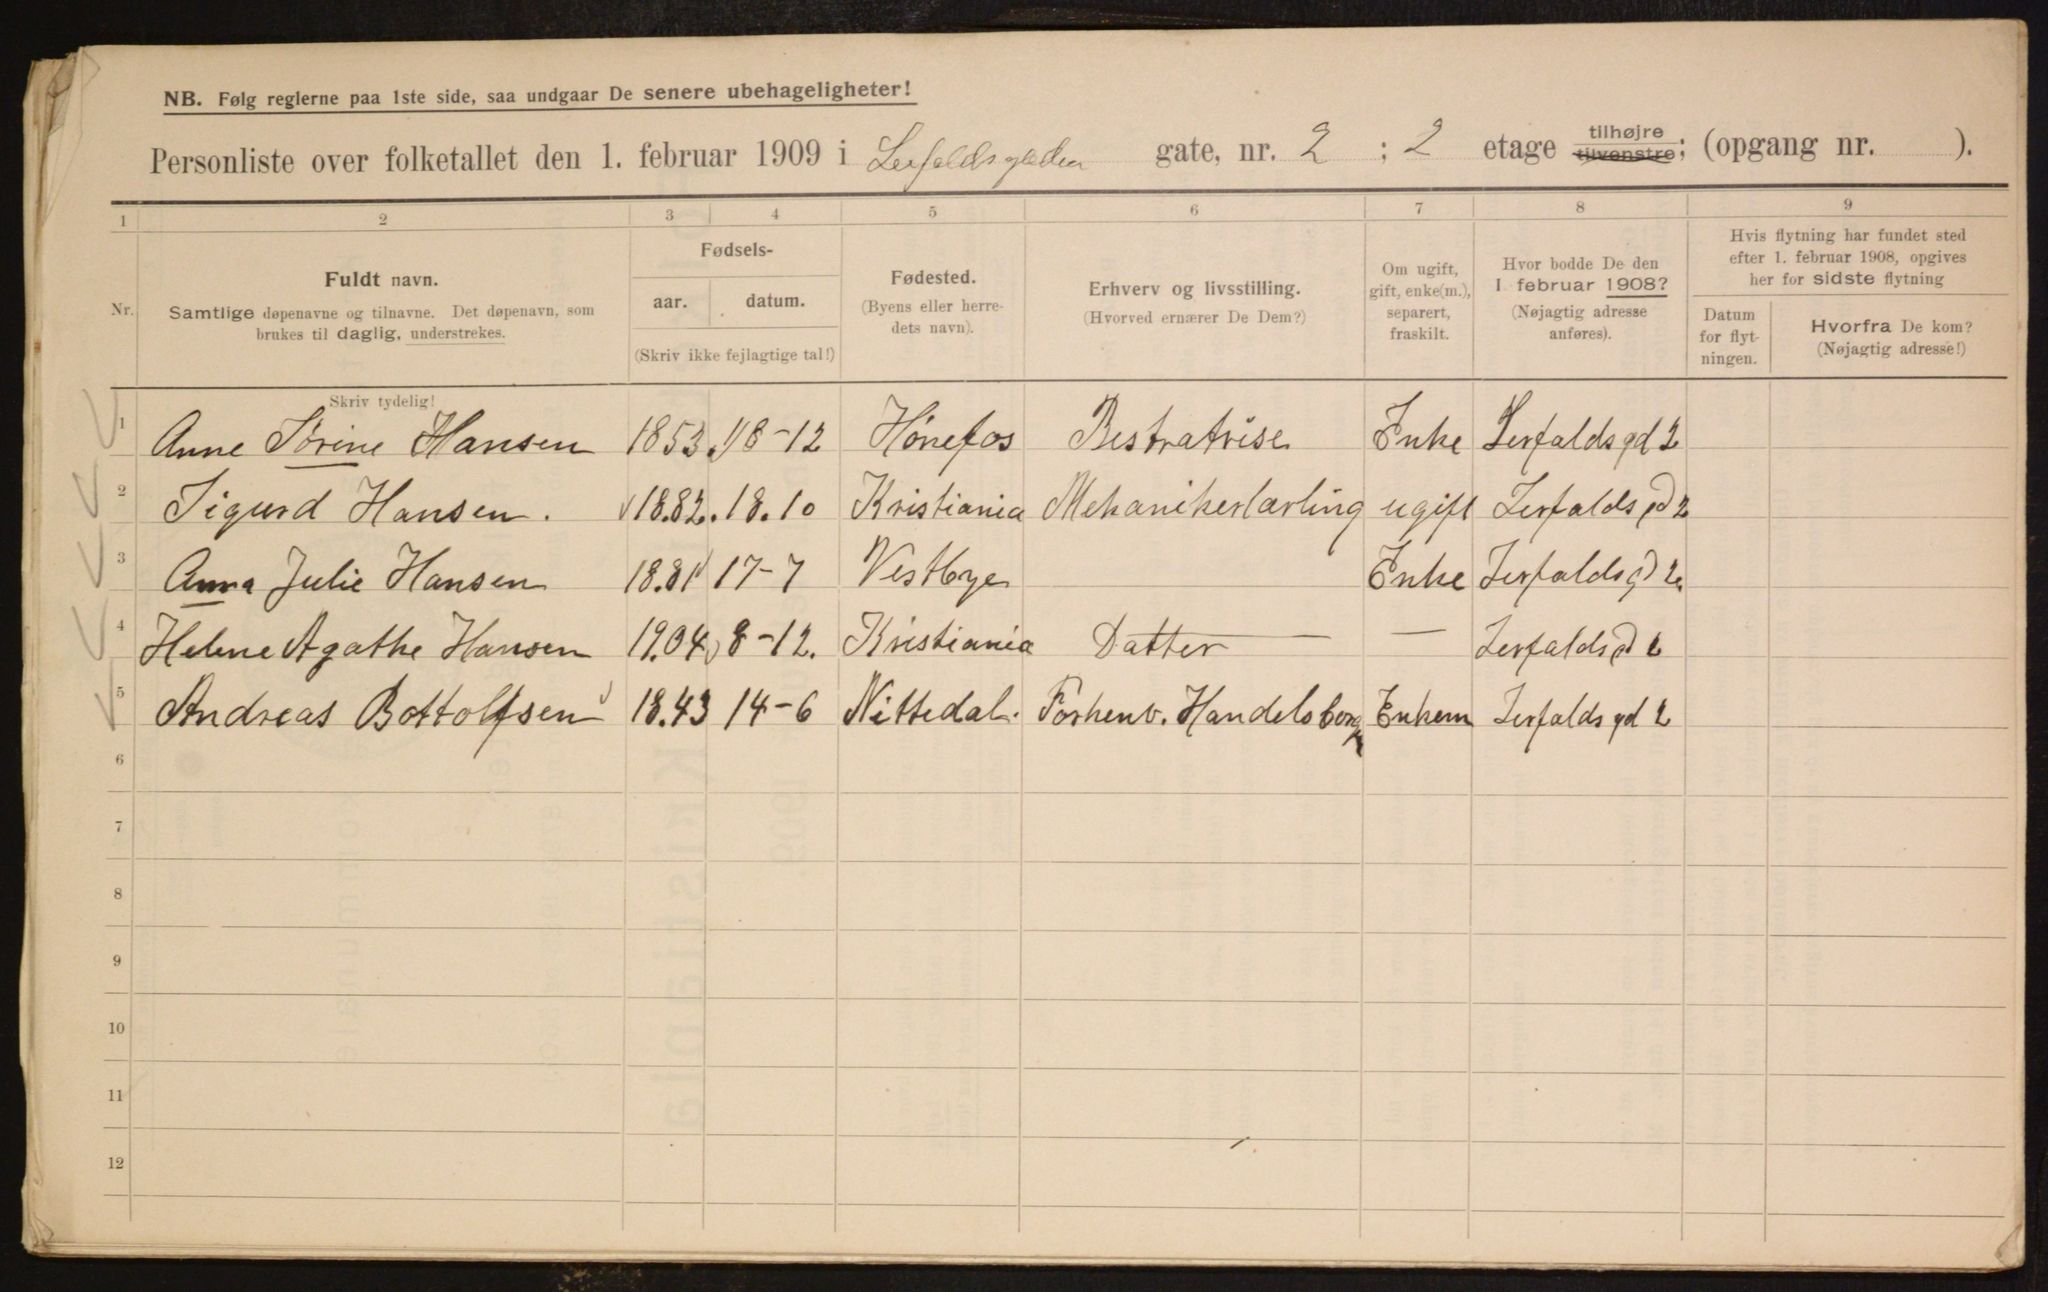 NB. Følg reglerne paa 1ste side, saa undgaar De senere ubehageligheter!
Personliste over folketallet den 1. februar 1909 i Lerfaldsgaden gate, nr. 2 ; 2 etage tilhøjre tilvenstre; (opgang nr. ).
1 2 3 4 5 6 7 8 9
Nr.
Fuldt navn.
Samtlige døpenavne og tilnavne. Det døpenavn, som
brukes til daglig, understrekes.
Skriv tydelig!
Fødsels-
aar. datum.
(Skriv ikke fejlagtige tal!)
Fødested.
(Byens eller herre-
dets navn).
Erhverv og livsstilling.
(Hvorved ernærer De Dem?)
Om ugift,
gift, enke(m.),
separert,
fraskilt.
Hvor bodde De den
1 februar 1908?
(Nøjagtig adresse
anføres).
Hvis flytning har fundet sted
efter 1. februar 1908, opgives
her for sidste flytning
Datum
for flyt-
ningen.
Hvorfra De kom?
(Nøjagtig adresse!)
1 Anne Sørine Hansen 1853. 18-12 Hønefos Bestratrise Enke Lerfaldsgd 2
2 Sigurd Hansen. 18.82. 18.10 Kristiania Mekanikerlærling ugift Lerfaldsgd 2
3 Anna Julie Hansen 18.81 17-7 Vestbye Enke Lerfaldsgd 2.
4 Helene Agathe Hansen 19.04 8-12. Kristiania Datter — Lerfaldsgd 2
5 Andreas Bottolfsen 18.43 14-6 Nittedal. Forhenv. Handelsborg Enkem Lerfaldsgd 2
6
7
8
9
10
11
12